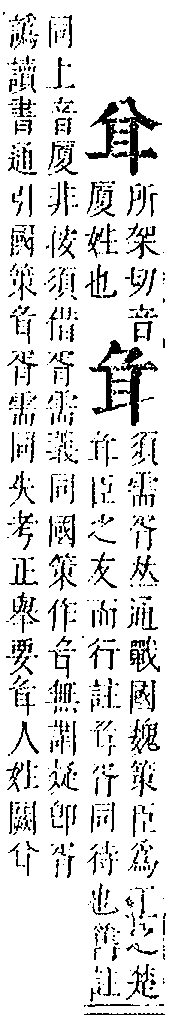 所架切音
厦姓也
須需胥𠀤通戰國魏策臣爲王之楚
臣之反而行註胥同待也舊註
同上音厦非彼須借胥需義同國策作無謂疑卽胥
譌讀書通引國策胥需同失考正舉要人姓闕